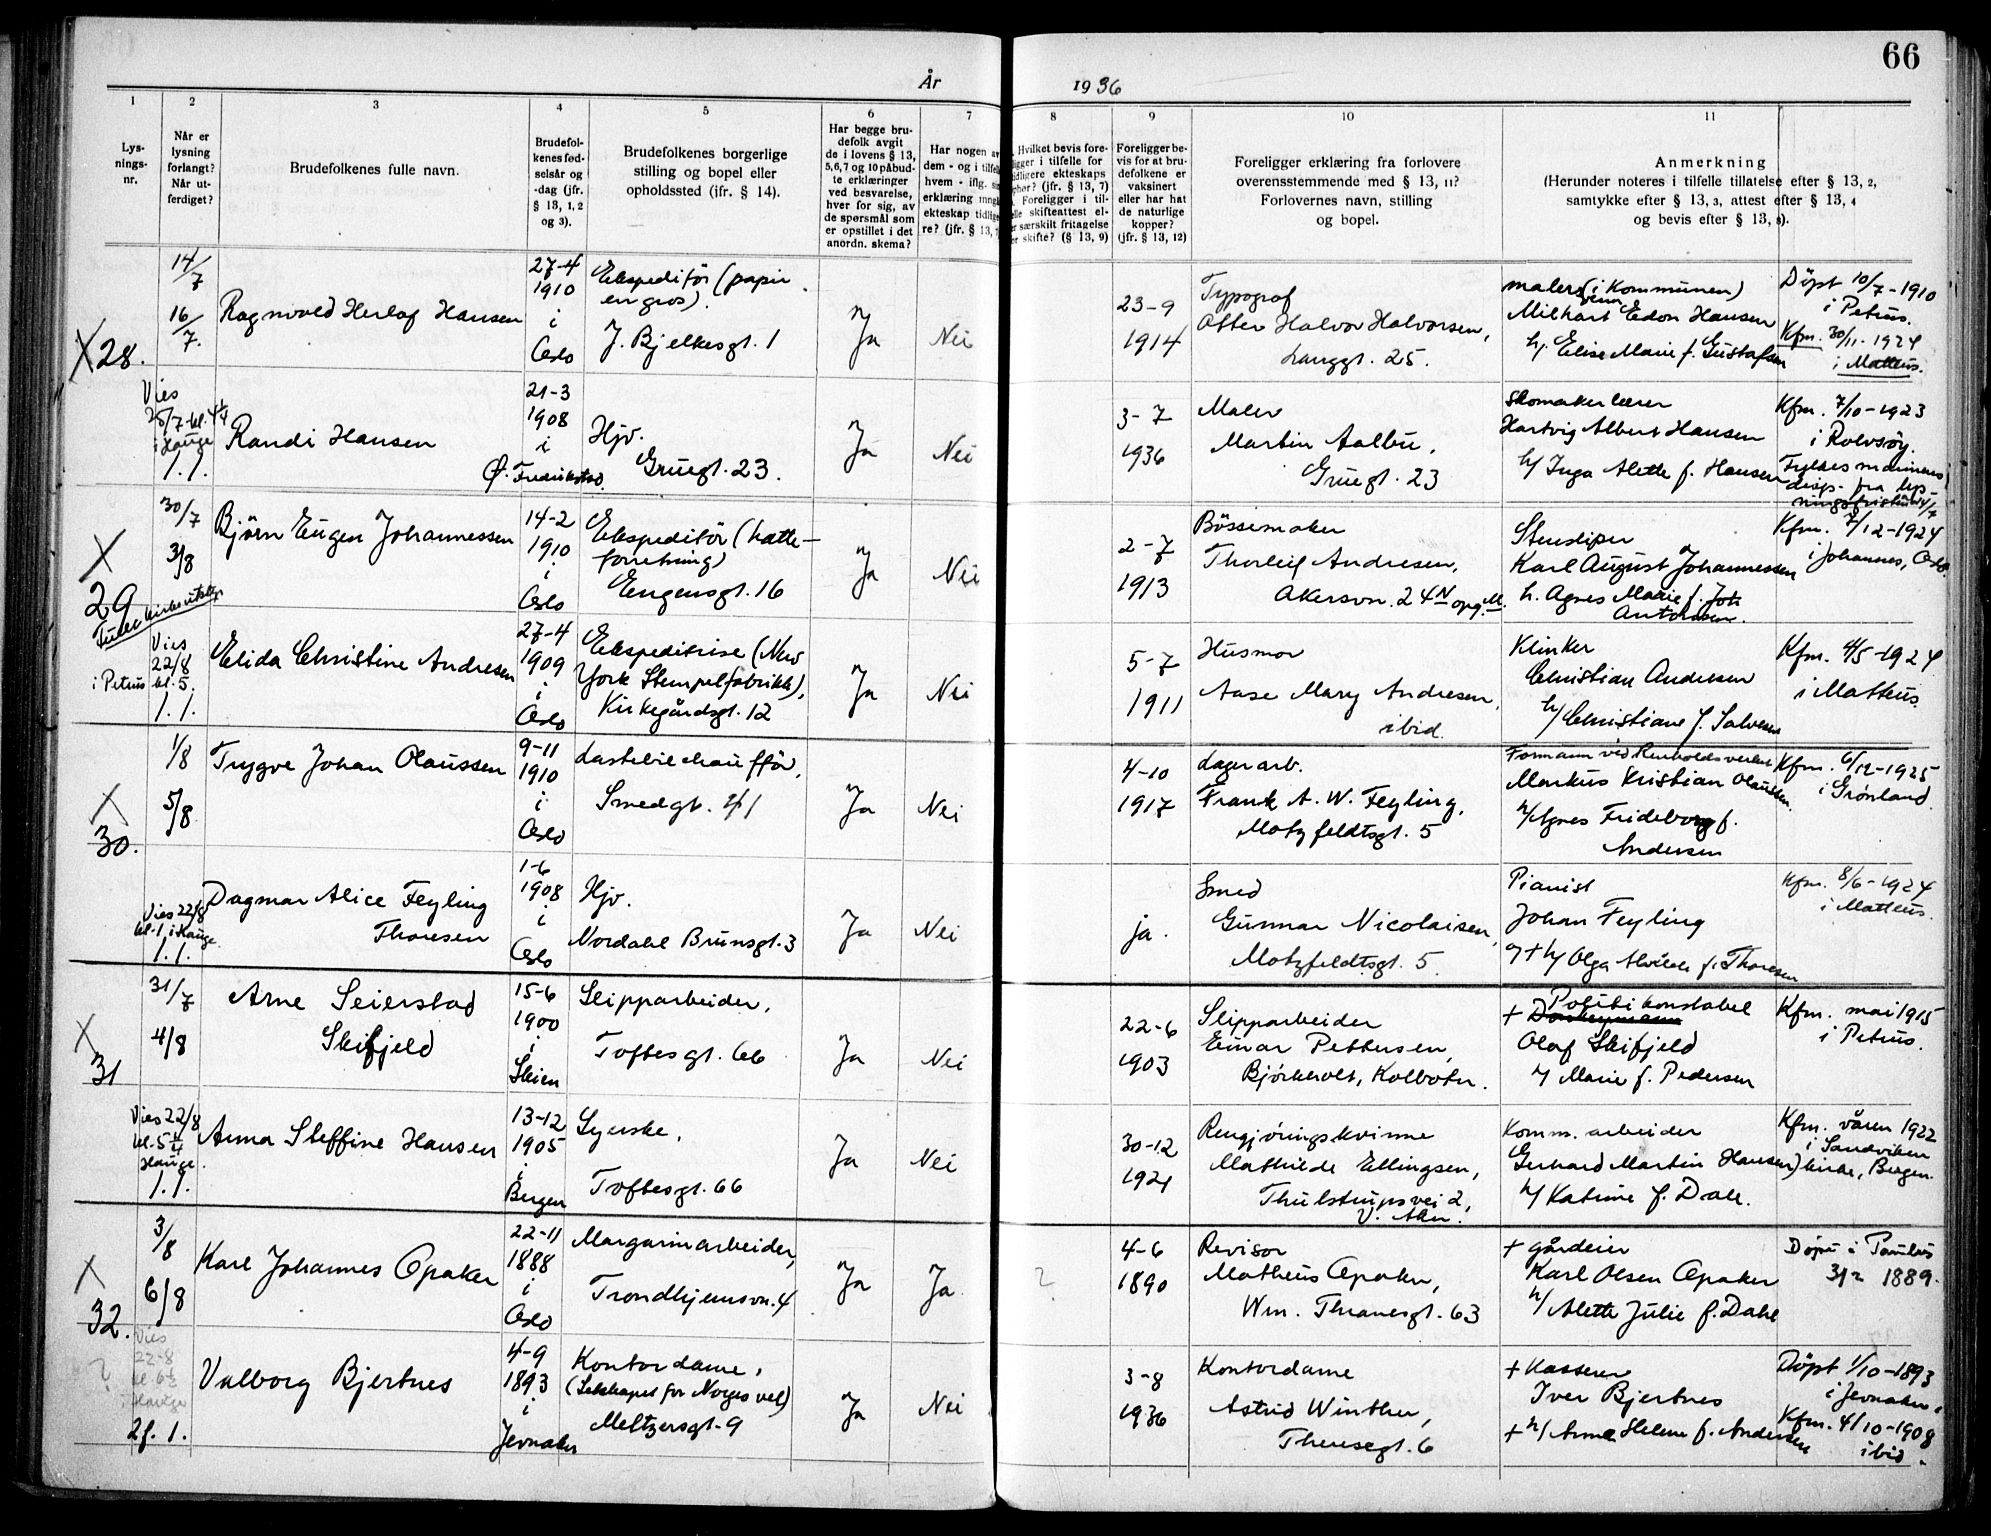 66
År 1936
1
2
3
4
5
6
7
8
9
10
11
Lys-
nings-
nr.
Når er
lysning
forlangt?
Når ut-
ferdiget?
Brudefolkenes fulle navn.
Brudefol-
kenes fød-
selsår og
-dag (jfr.
§ 13, 1, 2
og 3).
Brudefolkenes borgerlige
stilling og bopel eller
opholdssted (jfr. § 14).
Har begge bru-
defolk avgit
de i lovens § 13,
5,6,7 og 10 påbud-
te erklæringer
ved besvarelse,
hver for sig, av
de spørsmål som
er opstillet i det
anordn. skema?
Har nogen av
dem - og i tilfelle
hvem - iflg.
erklæring inngå
ekteskap tidlige
re? (jfr. § 13,
Hvilket bevis fore-
ligger i tilfelle for
tidligere ekteskaps
ophør? (jfr. § 13, 7)
Foreligger i til-
felle skifteattest el-
er særskilt fritagelse
er skifte? (§ 13, 9)
Foreligger be-
vis for at bru-
defolkene er
vaksinert
eller har hat
de naturlige
kopper?
(jfr. § 13, 12)
Foreligger erklæring fra forlovere
overensstemmende med § 13, 11?
Forlovernes navn, stilling
og bopel.
Anmerkning
(Herunder noteres i tilfelle tillatelse efter § 13, 2,
samtykke efter § 13, 3, attest efter § 13, 4
og bevis efter § 13, 8).
X 28.
14/7
16/7.
Ragnvald Herlof Hansen
27-4
1910
i
Oslo
Ekspeditør (papir
en gros).
J. Bjelkesgt. 1
Ja
Nei
23-9
1914
Typograf
Otter Halvor Halvorsen,
Langgt. 25.
maler (i Kommunen)
Milhart Edvin Hansen
h/ Elise Marie f. Gustafsen
Döpt 10/7-1910
i Petrus.
Kfm. 30/11-1924
i Matteus.
Vies
25/7-kl. 4 1/4
i Hauge
1. 1.
Randi Hansen
21-3
1908
i
Ø. Fredrikstad
Hjv.
Gruegt. 23.
Ja
Nei
3-7
1936
Maler
Martin Aalbu,
Gruegt. 23
Skomakerlærer
Hartvig Albert Hansen
h/ Inga Alette f. Hansen
Kfm. 7/10-1923
i Rolvsöy.
X
29
30/7
3/8
Björn Eugen Johannessen
14-2
1910
i
Oslo
Ekspeditör (hatte-
forretning)
Eugensgt. 16
Ja
Nei
2-7
1913
Bössemaker
Thorleif Andresen,
Akersvn. 24 N opg. M.
Stensliper
Karl August Johannessen
h. Agnes Marie f. Joh
Antonsen.
Kfm. 7/12-1924
i Johannes, Oslo.
Vies
22/8
i Petrus kl. 5.
1. 1.
Elida Christine Andresen
27-4
1909
i
Oslo
Ekspeditrise (New
York Stempelfabrikk),
Kirkegårdsgt. 12
Ja
Nei
5-7
1911
Husmor
Aase Mary Andresen,
ibid.
Klinker
Christian Andresen
h/ Christiane f. Salvesen
Kfm. 4/5-1924
i Matteus.
X
30.
1/8
5/8
Trygve Johan Olaussen
9-11
1910
i
Oslo
Lastebilchaufför,
Smedgt. 41
Ja
Nei
4-10
1917
Lagerarb.
Frank A. W. Feyling,
Motzfeldtsgt. 5
Formann ved Renholdsverket
Markus Kristian Olaussen
h/ Agnes Frideborg f.
Andersen
Kfm. 6/12-1925
i Grönland.
Vies 22/8
kl. 1. i Hauge.
1. 1.
Dagmar Alice Feyling
Thoresen
1-6
1908
i
Oslo
Hjv.
Nordahl Brunsgt. 3
Ja
Nei
ja.
Smed
Gunnar Nicolaisen,
Motzfeldtsgt. 5.
Pianist
Johan Feyling
og + h/ Olga Alvilde f. Thoresen
Kfm. 8/6-1924
i Matteus.
X
31
31/7
4/8
Arne Seierstad
Skifjeld
15-6
1900
i
Skien
Slipparbeider,
Toftesgt. 66
Ja
Nei
22-6
1903
Slipparbeider
Einar Pettersen,
Björkeholt, Kolbotn.
+ Politikonstabel
Olaf Skifjeld
h/ Marie f. Pedersen
Kfm. mai 1915
i Petrus.
Vies 22/8
kl. 5 1/4
Hauge.
1. 1.
Anna Steffine Hansen
13-12
1905
i
Bergen
Syerske,
Toftesgt. 66
Ja
Nei
30-12
1921
Rengjöringskvinne
Mathilde Ellingsen,
Thulstrupsvei 2,
V. Aker.
Komm. arbeider
Gerhard Martin Hansen
h/ Katrine f. Dale.
Kfm. våren 1922
i Sandviken
kirke, Bergen.
X
32.
3/8
6/8
Karl Johannes Opaker
22-11
1888
i
Oslo
Margarinarbeider,
Trondhjemsvn. 4
Ja
Ja
?
4-6
1890
Revisor
Matheus Opaker,
Wm. Thranesgt. 63
+ gårdeier
Karl Olsen Opaker
h/ Alette Julie f. Dahl
Döpt i Paulus
3/2 1889.
?
Vies
22-8
kl 6 1/2
i Hauge
2f. 1.
Valborg Bjertnes
4-9
1893
i
Jevnaker
Kontordame,
(Selskapet for Norges vel)
Meltzersgt. 9
Ja
Nei
3-8
1936
Kontordame
Astrid Winther,
Theresegt. 6
+ Kasserer
Iver Bjertnes
+ h/ Anna Helene f. Andersen
Döpt 1/10-1893
i Jevnaker.
Kfm. 4/10-1908
ibid.